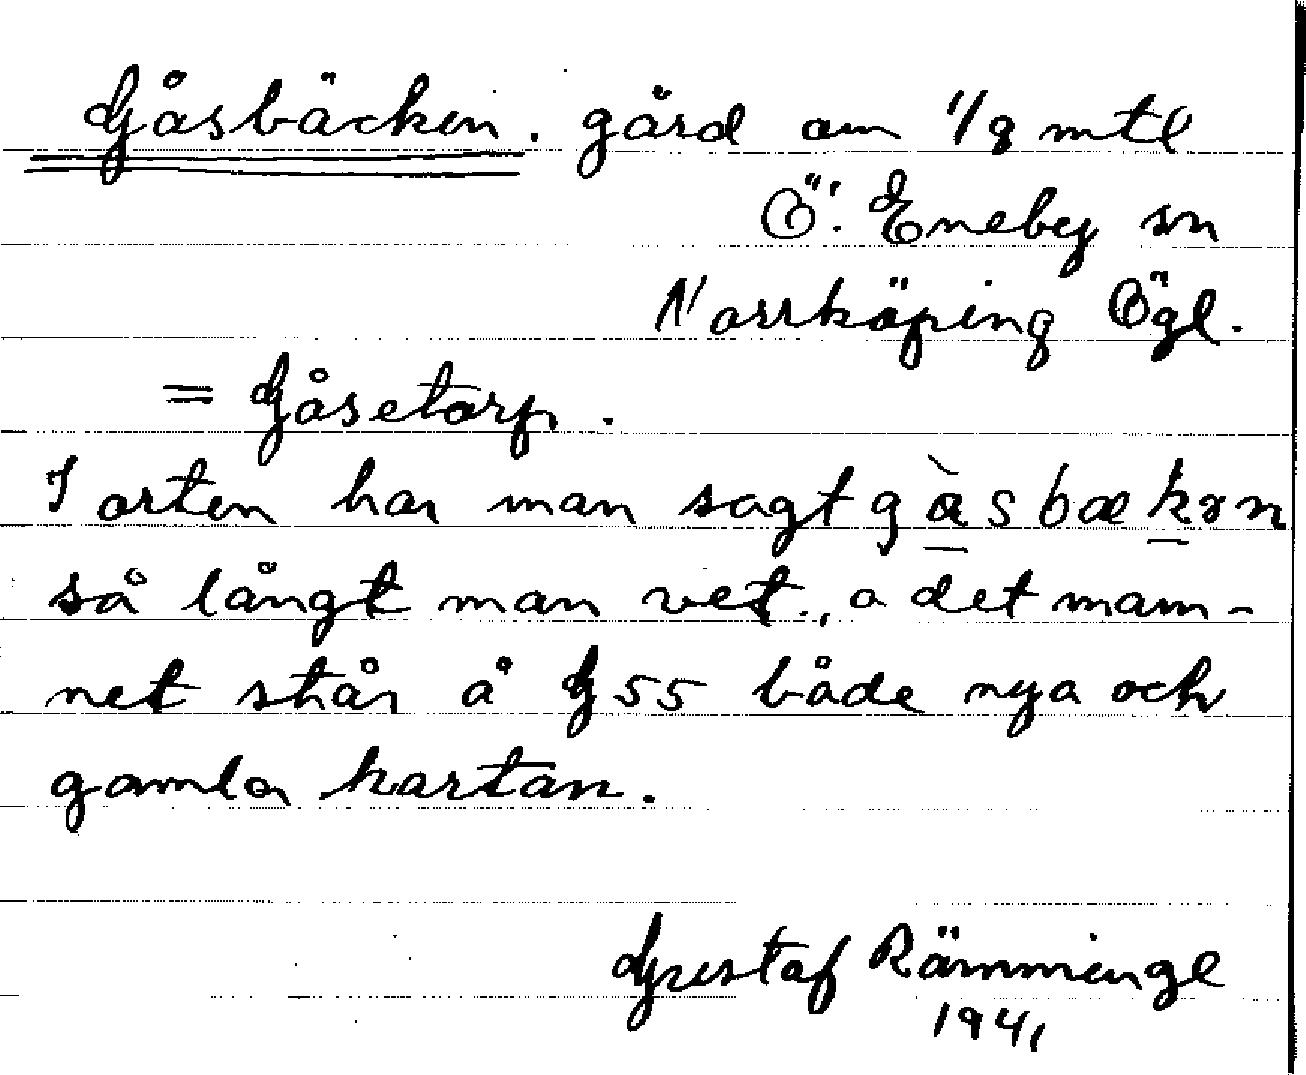 Gåsbäcken. gård om 1/8 mtl
Ö. Eneby sn
Norrköping Ögl.
= Gåsetorp.
I orten har man sagt gàsbækɤn
så långt man vet., o det nam-
net står å G55 både nya och
gamla kartan.
Gustaf Rämminge
1941